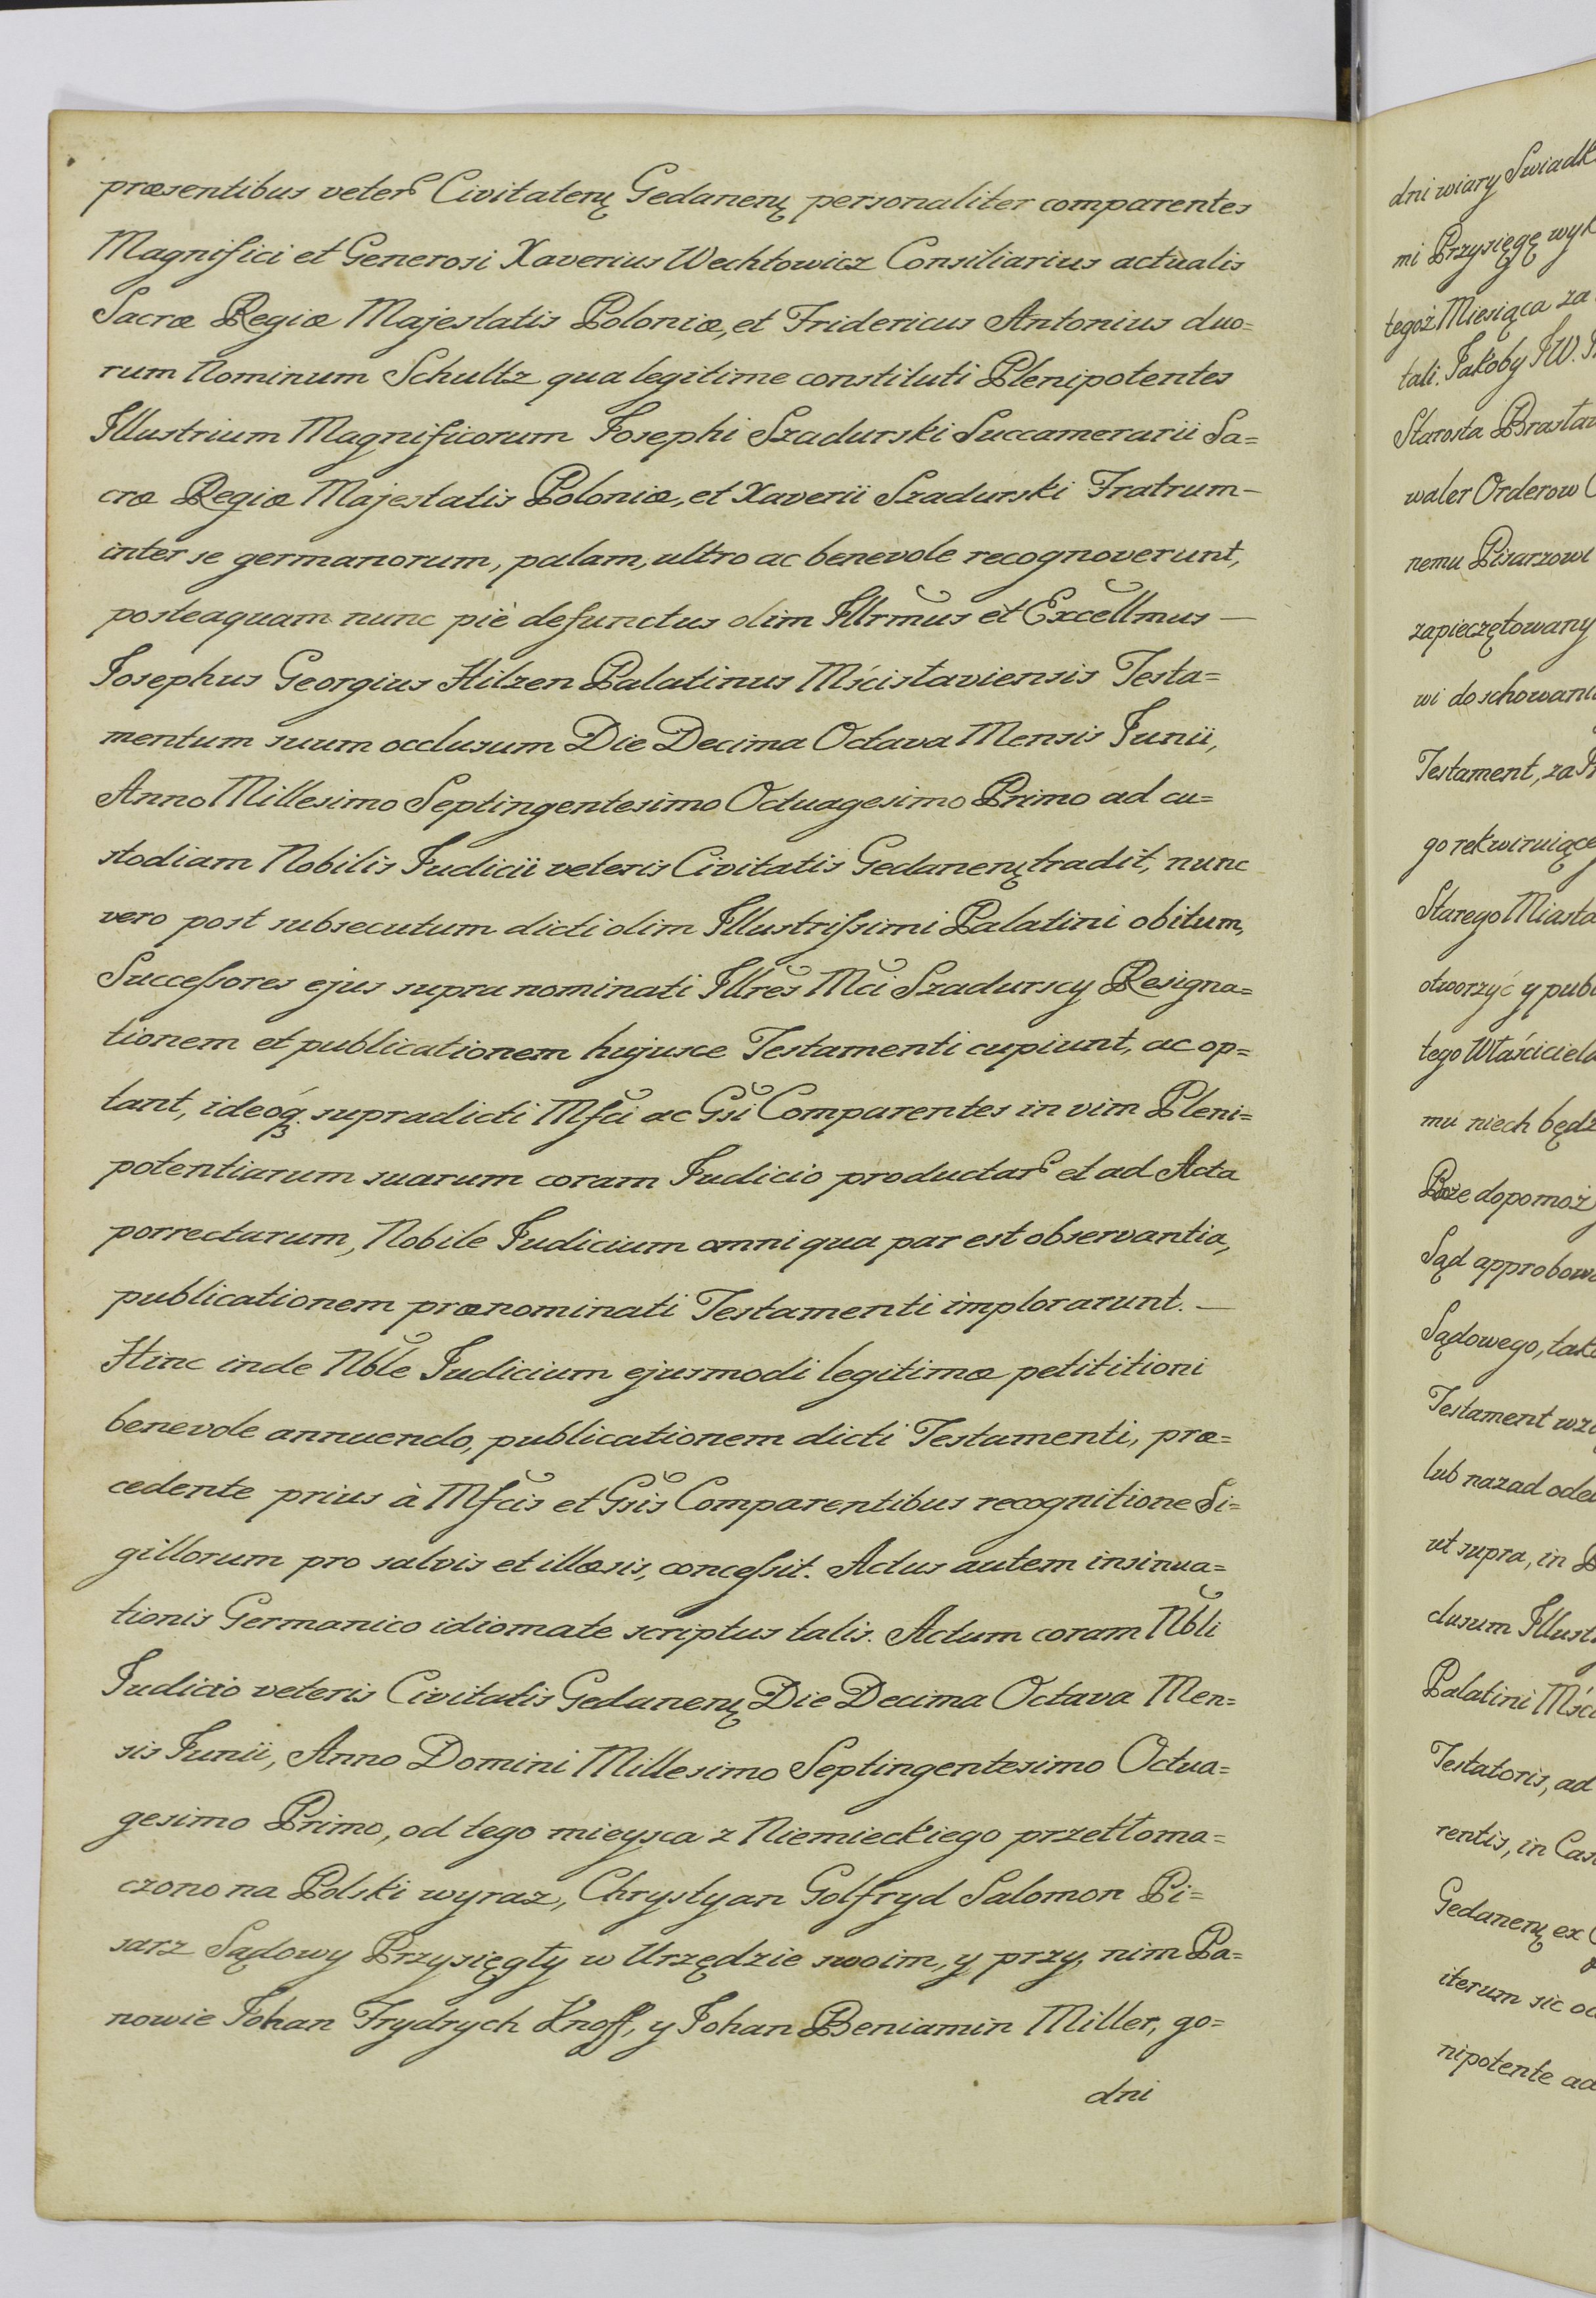 præsentibus veter Civitatenų Gedanenų personaliter comparentes
Magnifici et Generosi Xaverius Wechtowicz Consiliarius actualis
Sacræ Regiæ Majestatis Poloniæ, et Fridericus Antonius duo=
rum Nominum Schultz qua legitime constituti Plenipotentes
Illustrium Magnificorum Josephi Szadurski Succamerarii Sa=
cræ Regiæ Majestatis Poloniæ, et Xaverii Szadurski Fratrum—
inter se germanorum, palam, ultro ac benevole recognoverunt,
posteaquam nunc piè defunctus olim Illrmus et Excellmus —
Josephus Georgius Hilzen Palatinus Mścisłaviensis Testa=
mentum suum occlusum Die Decima Octava Mensis Junii,
Anno Millesimo Septingentesimo Octuagesimo Primo ad cu=
stodiam Nobilis Judicii veteris Civitatis Gedanenų tradit, nunc
vero post subsecutum dicti olim Illustriſsimi Palatini obitum,
Succeſsores ejus supra nominati Illres Mci Szadurscy Resigna=
tionem et publicationem hujusce Testamenti cupiunt, ac op=
tant, ideóq₃. supradicti Mfci ac Gsi Comparentes in vim Pleni=
potentiarum suarum coram Judicio productar et ad Acta
porrectarum, Nobile Judicium omni qua par est observantia,
publicationem prænominati Testamenti implorarunt. —
Hinc inde Nble Judicium ejusmodi legitimæ petititioni
benevole annuendo, publicationem dicti Testamenti, præ=
cedente prius à Mfcis et Gsis Comparentibus recognitione Si=
gillorum pro salvis et illæsis, conceſsit. Actus autem insinua=
tionis Germanico idiomate scriptus talis. Actum coram Nbli
Judicio veteris Civitatis Gedanenų Die Decima Octava Men=
sis Junii, Anno Domini Millesimo Septingentesimo Octua=
gesimo Primo, od tego mieysca z Niemieckiego przetłoma=
czono na Polski wyraz, Chrystyan Golfryd Salomon Pi=
sarz Sądowy Przysięgły w Urzędzie swoim, y przy, nim Pa=
nowie Johan Frydrych Knoff, y Johan Beniamin Miller, go=
dni
dni wiary Swiadk
mi Przysięgę wyk
tegoż Miesiąca za
tali. Jakoby JW.
Starosta Brasław
waler Orderow
nemu Pisarzowi
zapieczętowany
wi do schowani
Testament, za
go rekwiruiące
Starego Miasta
otworzyć y publ
tego Właściciela
mu niech będz
Boże dopomoż
Sąd approbowa
Sądowego, tak
Testament wz
lub nazad ode
ut supra, in
clusum Illust
Palatini Mści
Testatoris, ad
rentis, in Cas
Gedanenų ex
iterum sic oc
nipotente ad